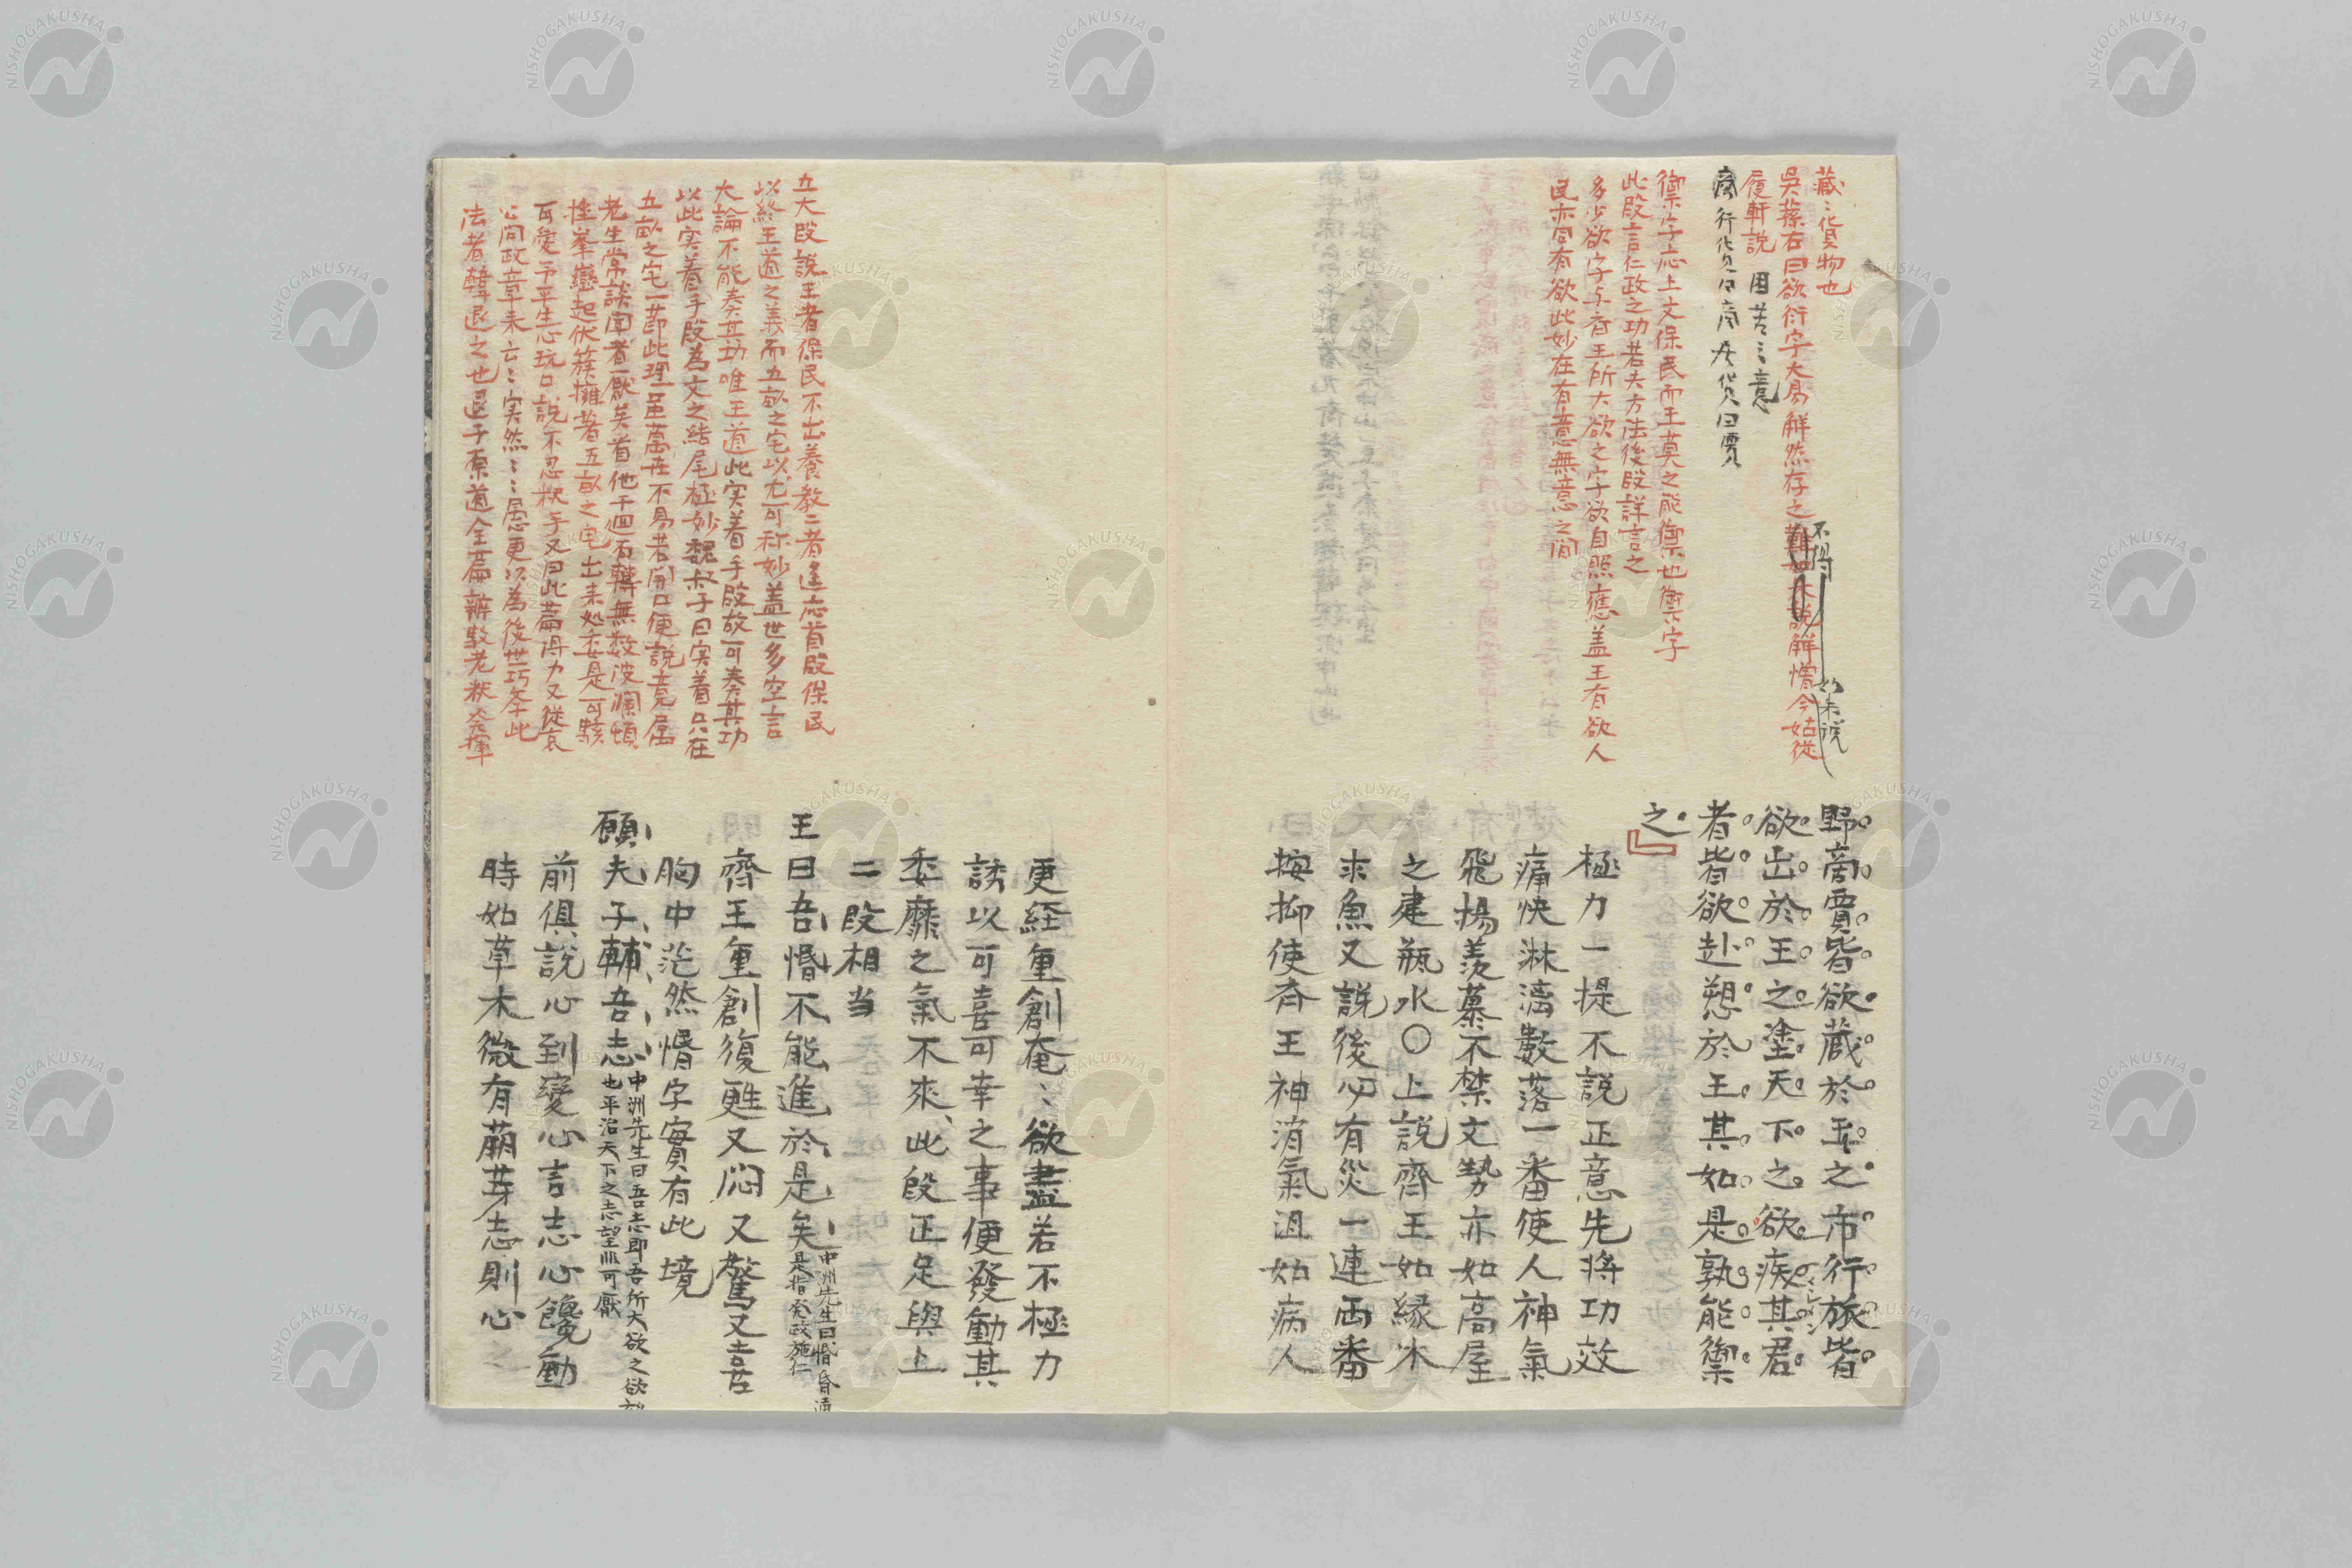 藏〻貨物也
吳蓀右曰欲衍字大易解然存之難如本說解惛今姑從
不得
如朱說
履軒説　困苦〻意
商行貨曰商居貨曰賈
禦字応上文保民而王莫之能禦也禦字
此段言仁政之功若夫方法後段詳言之
多少欲字与斉王所大欲之字欲自照應蓋王有欲人
民亦同有欲此妙在有意無意之間
野商賈皆欲蔵於王之市行旅皆
欲出於王之塗天下之欲疾其君
者皆欲赴愬於王其如是孰能禦
之
極力一提不説正意先将功效
痛快淋漓數落一番使人神氣
飛揚羨慕不禁文勢亦如高屋
之建瓶水〇上説齊王如縁木
求魚又説後必有災一連両番
按抑使斉王神消氣沮如病人
立大段説王者保民不出養教二者遙応首段保民
以終王道之義而五畝之宅以尤可称妙蓋世多空言
大論不能奏其功唯王道此実着手段故可奏其功
以此実着手段為文之結尾極妙魏叔子曰実着只在
五畝之宅一節此理虽萬古不易若開口便説竟屬
老生常談聞者厭矣看他千迴百轉無数波瀾頓
挫峯巒起伏簇擁著五畝之宅出来如委是可駭
可愛予平生心玩口説不忍釈手又曰此篇得力又從哀
公問政章来云〻実然〻〻愚更以為後世巧夲此
法者韓退之也退子原道全篇辨駁老釈発揮
更経重創奄〻欲盡若不極力
誘以可喜可幸之事便發動其
委靡之氣不來此段正足與上
二段相当
王曰吾惛不能進於是矣
中洲先生曰惛昏通
是指発政施仁
齊王重創復甦又悶又驚又喜
胸中茫然惛字實有此境
願夫子輔吾志
中洲先生曰吾志即吾所大欲之欲
也平治天下之志望非可厭
前俱説心到變心言志心纔動
時如草木微有萠芽志則心